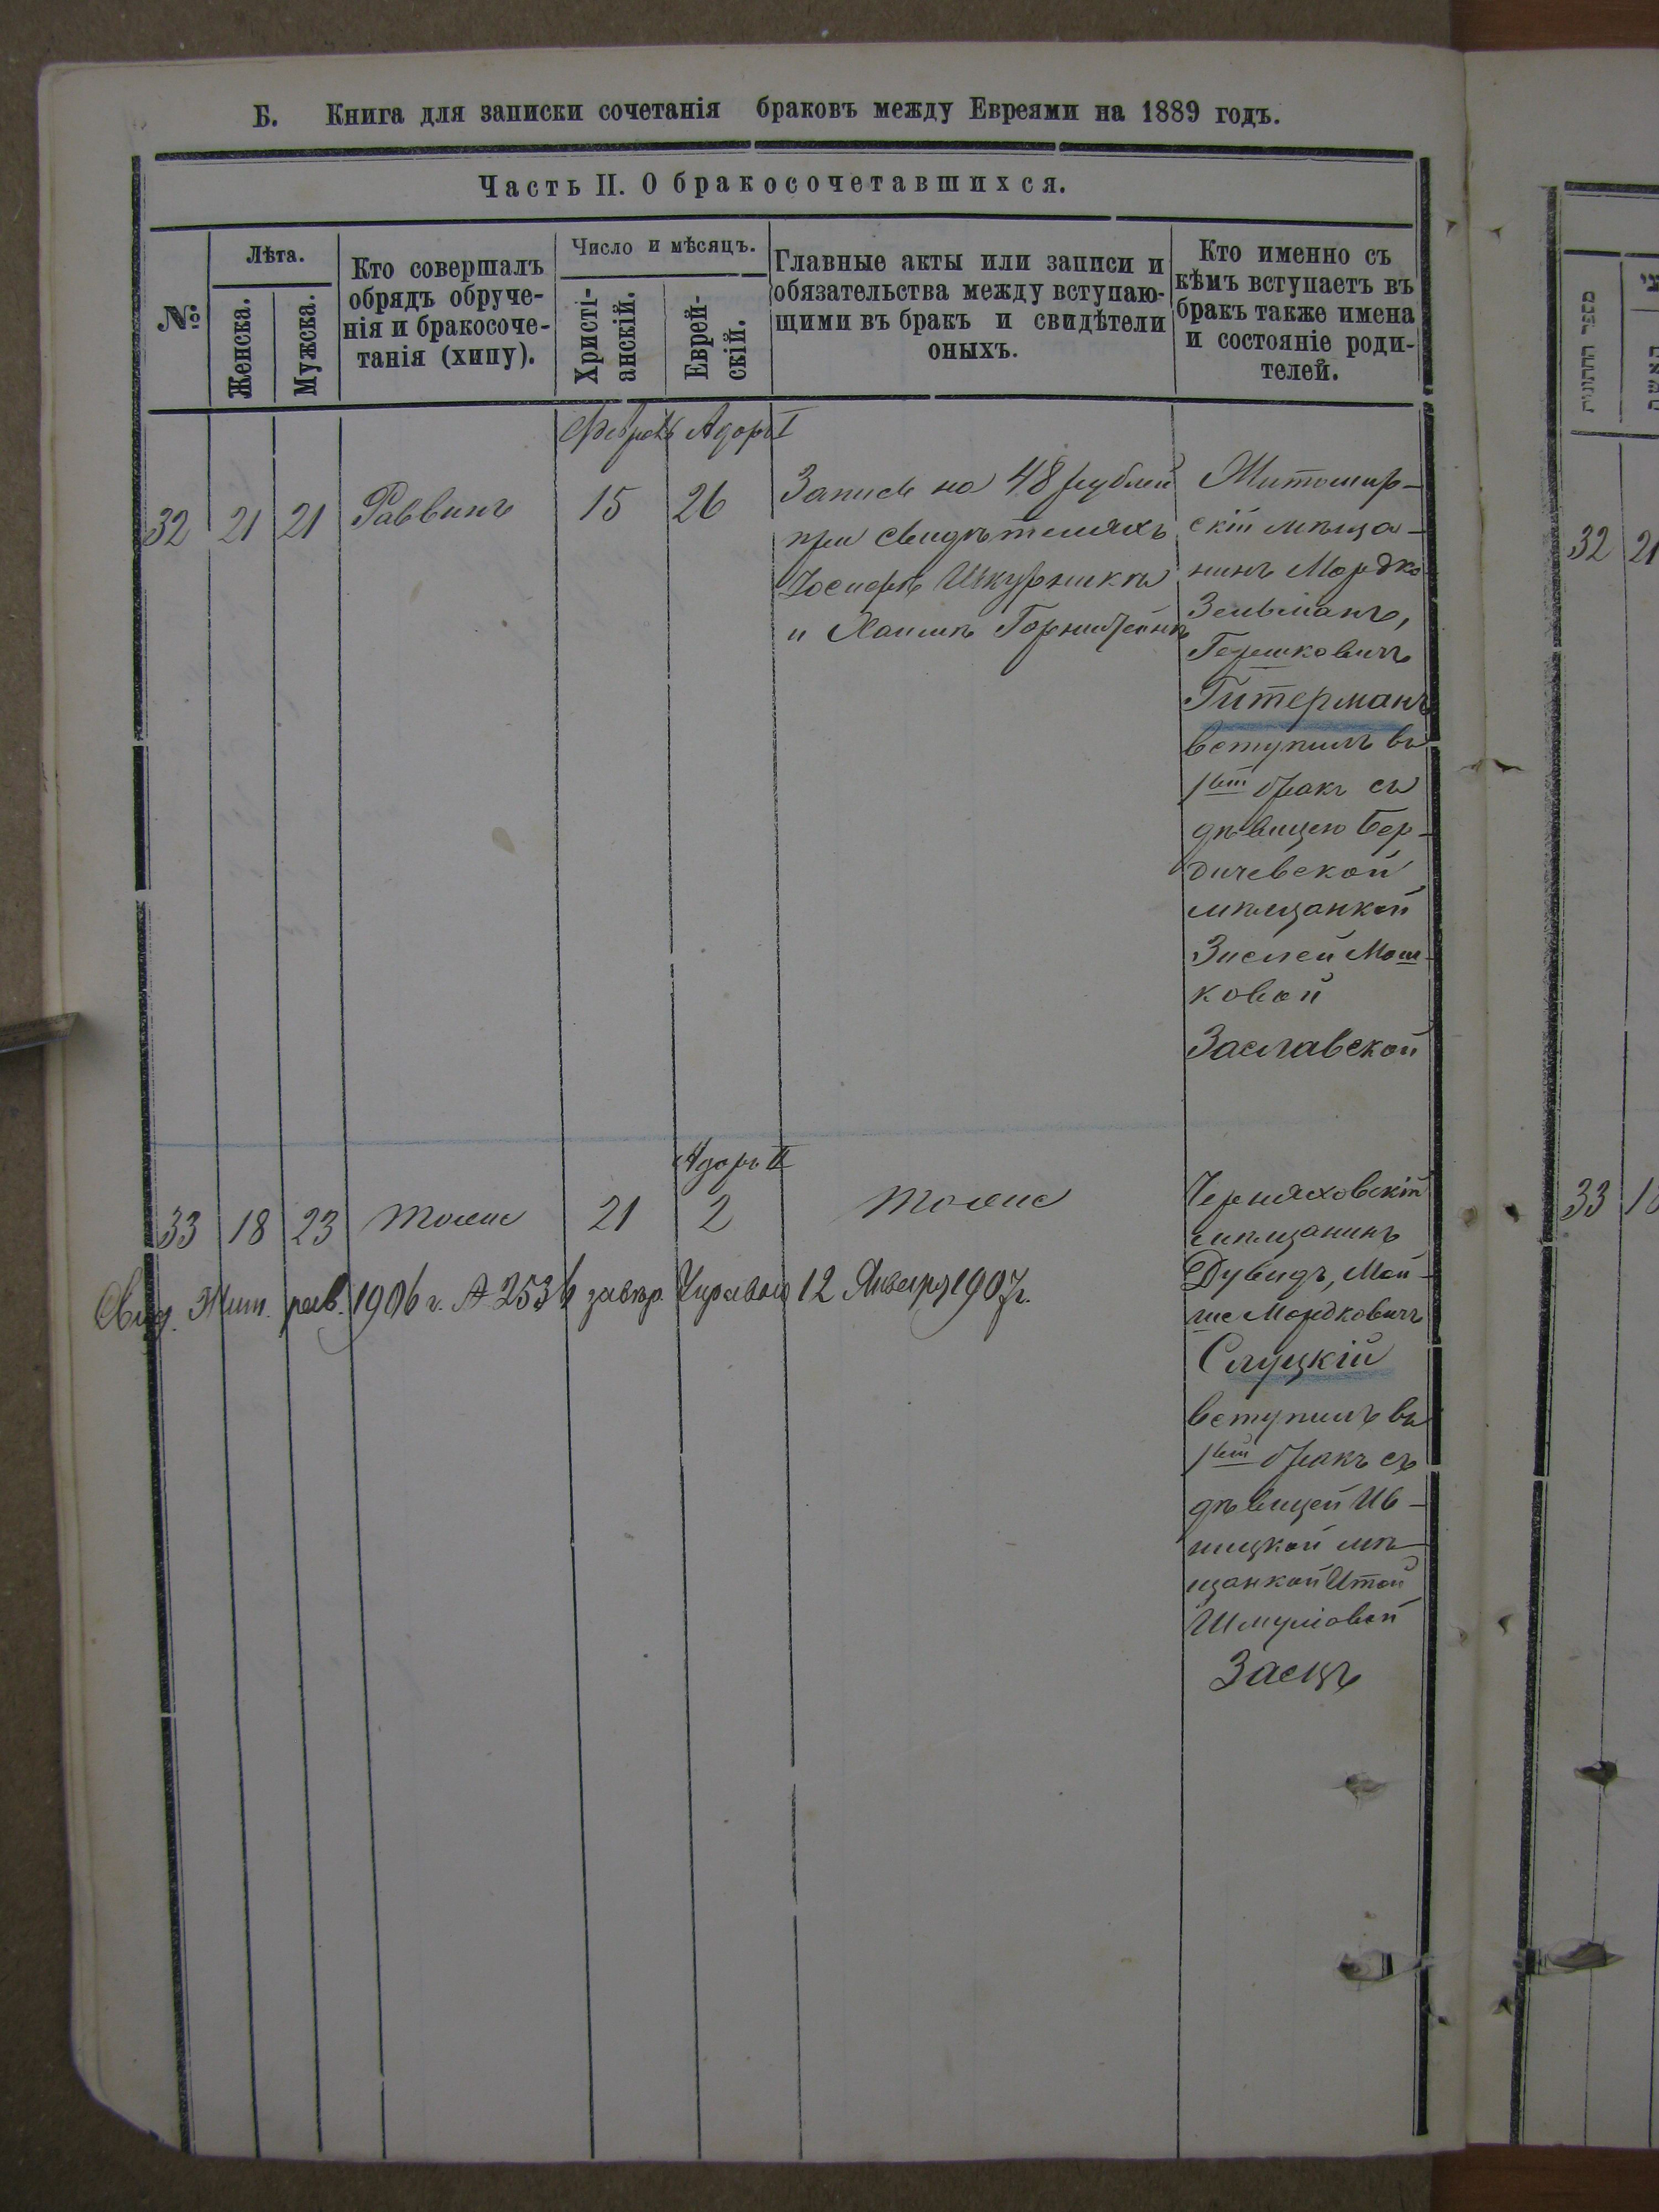 Б. Книга для записки сочетанія браковъ между Евреями на 1889 годъ.
Часть II. О бракосочетавшихся.
№
Лѣта.
Женска.
Мужска.
Кто совершалъ
обрядъ обруче-
нія и бракосоче-
танія (хипу).
Число и мѣсяцъ.
Христі-
анскій.
Еврей-
скій.
Главные акты или записи и
обязательства между вступаю-
щими въ бракъ и свидѣтели
оныхъ.
Кто именно съ
кѣмъ вступаетъ въ
бракъ также имена
и состояніе роди-
телей.
Адоръ I
32 21 21 Раввинъ 15 26
Запись на 48 рублей
при свидѣтеляхъ
Іосифѣ Шкурникѣ
и Хаимѣ
Житомир-
скій мѣща-
нинъ Мордко
Зельманъ,
Гершковичъ
Гитерманъ
вступилъ въ
1вый бракъ съ
дѣвицею Бер-
дичевской
мѣщанкой
Зислей Мош-
ковой
Заславской
Адоръ II
33 18 23 тоже 21 2 тоже
Черняховскій
мѣщанинъ
Дувидъ, Мой-
ше Мордковичъ
Слуцкій
вступилъ въ
1вый бракъ съ
дѣвицей Ив-
ницкой мѣ-
щанкой Итой
Шмулiовой
Заецъ
Свид. Жит. рав. 1906 г. № 2536 завѣр. Управою 12 Января 1907 г.
מספר החתונות
האשה
32 21
33 18